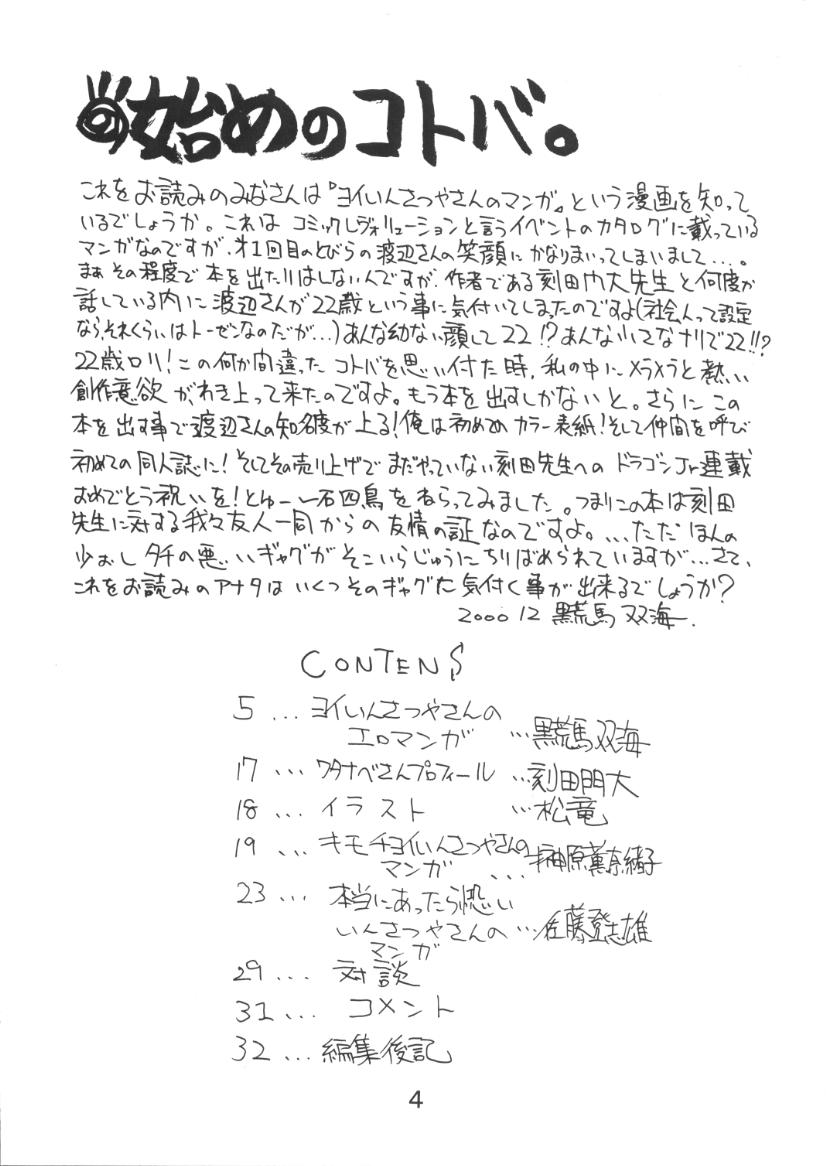 の始めのコトバ。
これをお読みのみなさんは『ヨイいんさつやさんのマンガ』という漫画を知って
いるでしょうか。これは コミックレヴォリューションと言うイベントのカタログに載っている
マンガなのですが、オ1回目のとびらの渡辺さんの笑顔にかなりまいってしまいまして…。
まぁ その程度で本を出したりはしないんですが、作者である刻田門大先生と何度か
話している内に渡辺さんが22歳という事に気付いてしまったのですよ(社会人って設定
なら、それくらいはトーゼンなのだが…)あんな幼ない顔して22!?あんな小さなナリで22!!?
22歳ロリ!この何か間違った コトバを思い付た時、私の中にメラメラと熱い
創作意欲がわき上って来たのですよ。もう本を出すしかないと。さらに この
本を出す事で渡辺さんの知名度が上る!俺は初めての カラー表紙!そして仲間を呼び
初めての同人誌に!そしてその売り上げで まだやっていない刻田先生への ドラゴンJr連載
おめでとう祝いを!とゆー一石四鳥をねらってみました。つまりこの本は刻田
先生に対する我々友人一同からの 友情の証なのですよ。…ただ ほんの
少おし タチの悪いギャグが そこいらじゅうに ちりばめられていますが…さて、
これをお読みのアナタは いくつそのギャグに気付く事が出来るでしょうか?
2000 12 黒荒馬 双海.
CONTENS
5 … ヨイいんさつやさんの
エロマンガ …黒荒馬双海
17 … ワタナベさんプロフィール …刻田門大
18 … イラスト …松竜
19 … キモチヨイいんさつやさんの
マンガ …榊原薫奈緒子
23 … 本当にあったら恐い
いんさつやさんの …佐藤登志雄
マンガ
29 … 対談
31 … コメント
32 … 編集後記
4